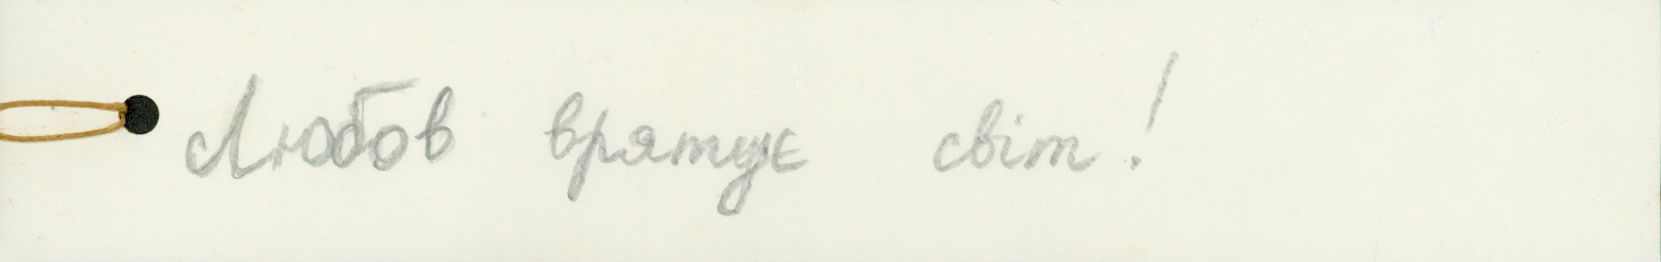 Любов врятує світ!